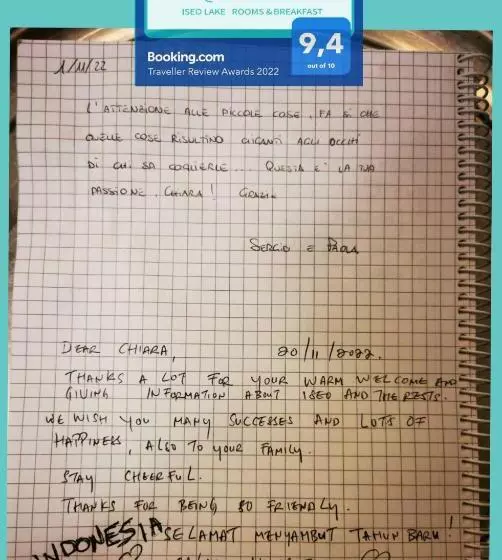 ISEO LAKE ROOMS & BREAKFAST
Booking.com
Traveller Review Awards 2022
9,4
out of 10
1/11/22
L'ATTENZIONE ALLE PICCOLE COSE, FA SÌ CHE
QUELLE COSE RISULTINO GIGANTI AGLI OCCHI
DI CHI SA COGLIERLE... QUESTA E' LA TUA
PASSIONE, CHIARA! GRAZIE
SERGIO E PAOLA
DEAR CHIARA, 20/11/2022.
THANKS A LOT FOR YOUR WARM WELCOME AND
GIVING INFORMATION ABOUT ISEO AND THE RESTS.
WE WISH YOU MANY SUCCESSES AND LOTS OF
HAPPINESS, ALSO TO YOUR FAMILY.
STAY CHEERFUL.
THANKS FOR BEING SO FRIENDLY.
INDONESIA SELAMAT MENYAMBUT TAHUN BARU!